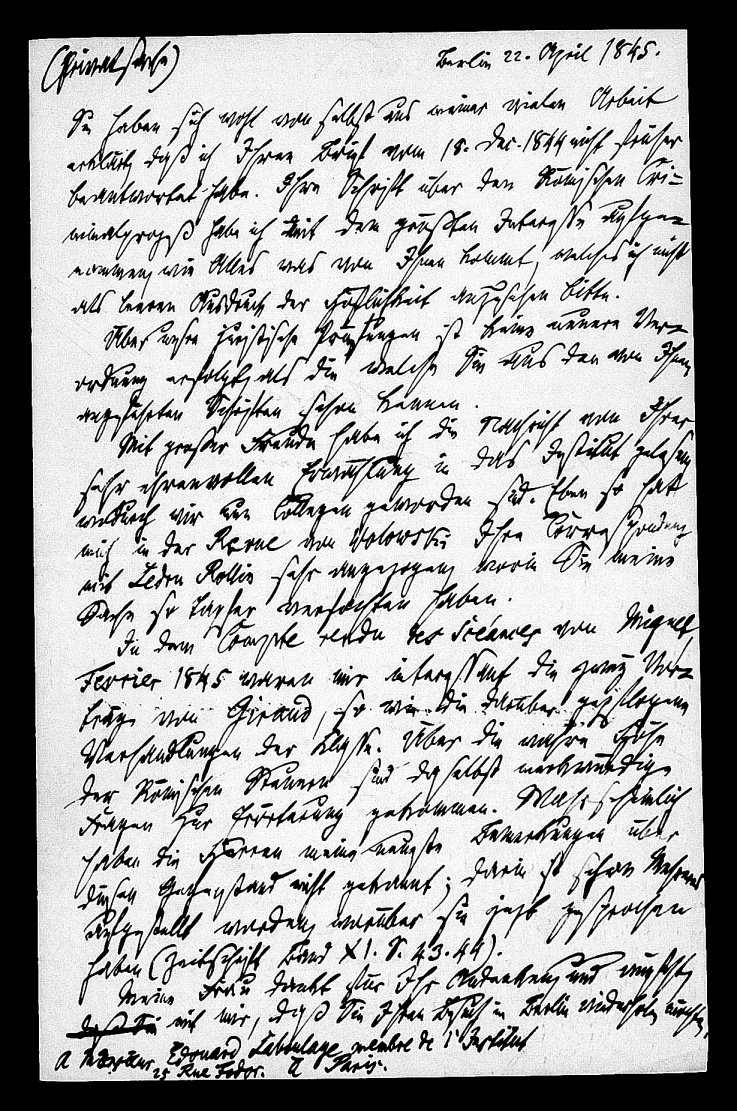 (Privatsache)
Berlin 22. April 1845.
Sie haben sich wohl von selbst aus meiner vielen Arbeit
erklärt, daß ich Ihren Brief vom 18. Dec. 1844 nicht früher
beantwortet habe. Ihre Schrift über den Römischen Cri-
minalprozeß habe ich mit dem größten Interesse aufge-
nommen, wie Alles was von Ihnen kommt, welches ich nicht
als leeren Ausdruck der Höflichkeit anzusehen bitte.
Über unsre juristische Prüfungen ist keine neuere Ver-
ordnung erfolgt, als die welche Sie aus den von Ihnen
angeführten Schriften schon kennen.
Mit großer Freude habe ich die Nachricht von Ihrer
sehr ehrenvollen Erwählung in das Institut gelesen
wodurch wir nun Collegen geworden sind. Eben so hat
mich in der Revue von Wolowski Ihre Correspondenz
mit Ledru Rollin sehr angezogen, worin Sie meine
Sache so tapfer verfochten haben.
In dem Compte rendu des Séances von Mignet,
Fevrier 1845 waren mir interessant die zwey Vor-
träge von Giraud, so wie die darüber gepflogene
Verhandlungen der Klasse. Über die wahre Höhe
der Römischen Steuern sind daselbst merkwürdige
Fragen zur Erörterung gekommen. Wahrscheinlich
haben die Herren meine neueste Bemerkungen über
diesen Gegenstand nicht gekannt; darin ist schon Mehreres
aufgestellt worden, worüber sie jetzt gesprochen
haben (Zeitschrift Band XI. S. 43. 44).
Meine Frau dankt für Ihr Andenken, und wünscht
mit mir, daß Sie Ihren Besuch in Berlin wiederholen möchten.
A Monsieur Edouard Laboulaye membre de l'Institut
25 Rue Taitbout à Paris.